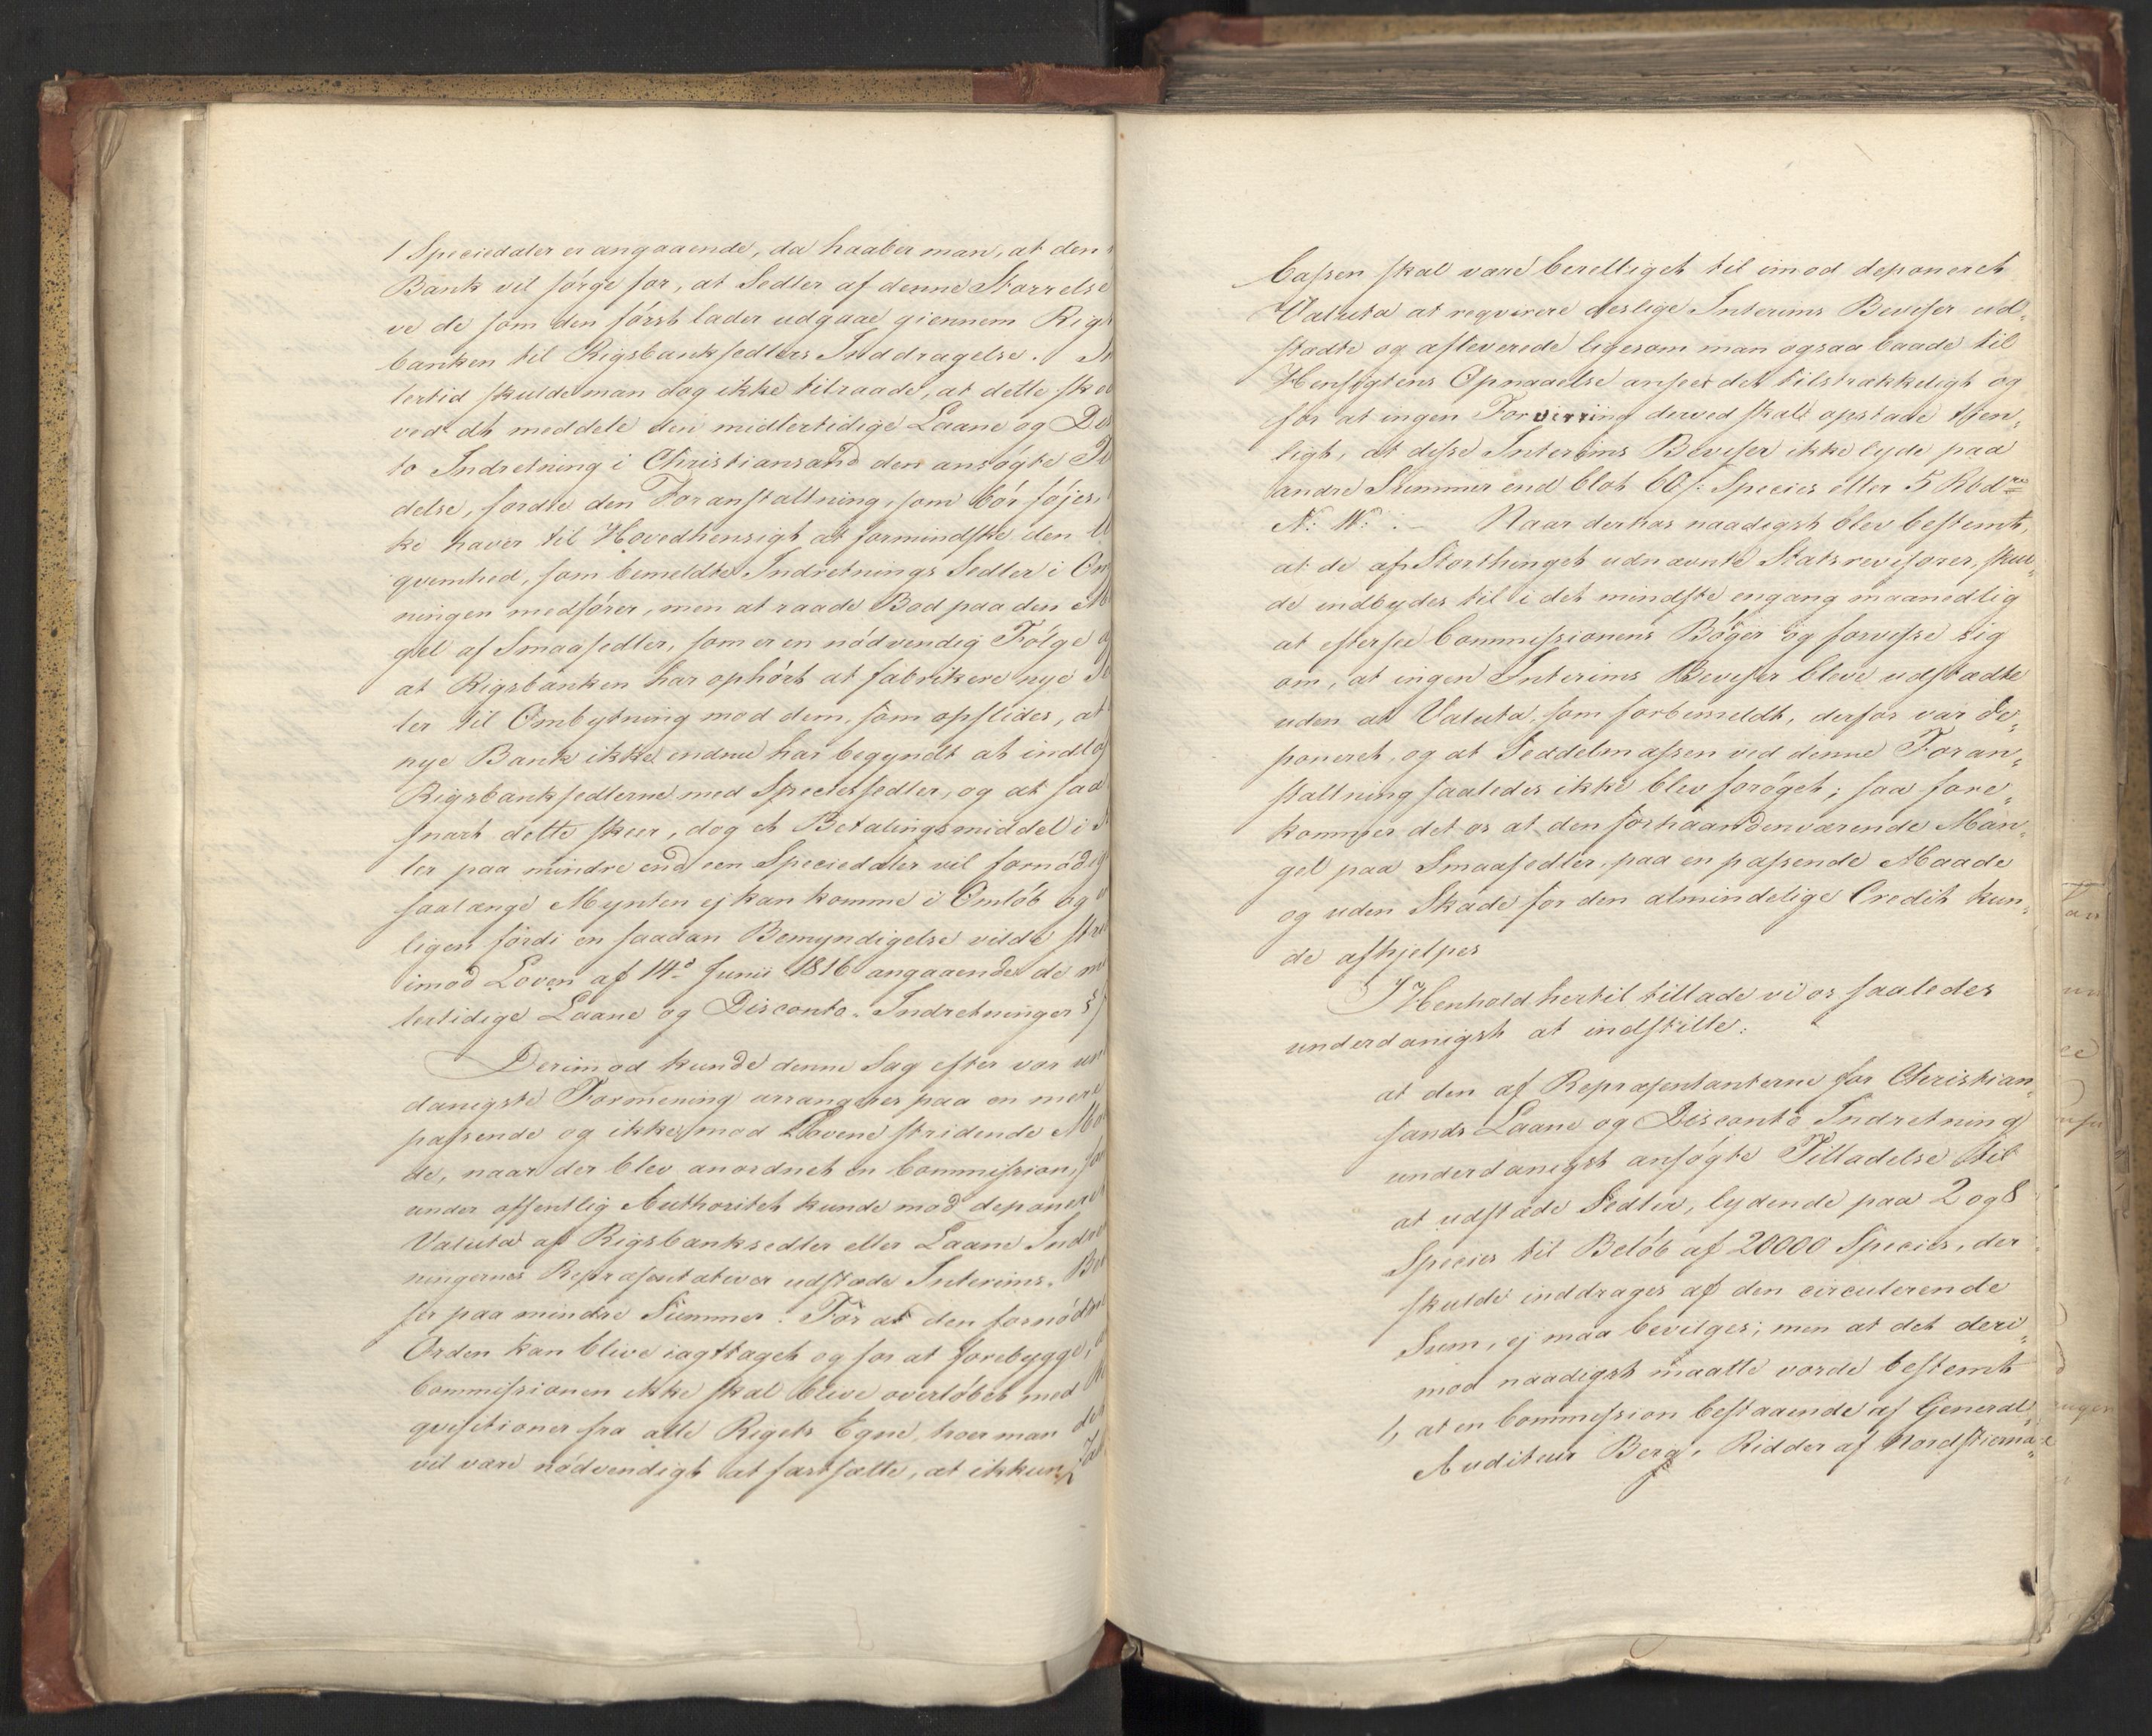 1 Speciedaler er angaaende, da haaber man, at den
Bank vil sørge for, at Sedler af denne Størrelse
ve de som den først lader udgaae giennem Rigs
banken til Rigsbanksedlers Inddragelse. I
lertid skulde man dog ikke tilraade, at dette skee
ved at meddele den midlertidige Laane og Dis
to Indretning i Christiansand den ansøgte Til
delse, fordie den Foranstaltning, som bør føjes,
ke haver til Hovedhensigt at formindske den U
qvemhed, som bemeldte Indretnings Sedler i Om
ningen medfører, men at raade Bod paa den M
gel af Smaasedler, som er en nødvendig Følge a
at Rigsbanken har ophørt at fabrikere nye Se
ler til Ombytning mod dem, som opslides, at
nye Bank ikke endnu har begyndt at indløs
Rigsbanksedlerne med Speciessedler, og at saa
snart dette skeer, dog et Betalingsmiddel i S
ler paa mindre end een Speciedaler vil fornødig
saalænge Mynten ej kan komme i Omløb og e
ligen fordi en saadan Bemyndigelse vilde stri
imod Loven af 14d Junii 1816 angaaende de m
lertidige Laane og Disconto-Indretninger §
Derimod kunde denne Sag efter vor un
danigste Formening arrangeres paa en mere
passende og ikke mod Lovene stridende Ma
de, naar der blev anordnet en Commission, so
under offentlig Authoritet kunde mod deponeret
Valuta af Rigsbanksedler eller Laane Indre
ningernes Repræsentativer udstæde Interims-Be
ser paa mindre Summer. For at den fornødne
Orden kan blive iagttaget og for at forebygge, a
Commissionen ikke skal blive overløbet med Re
qvisitioner fra alle Rigets Egne, troer man det
vil være nødvendigt at fastsætte, at ikkun
Cassen skal være berettiget til imod deponeret
Valuta at reqvirere deslige Interims Beviser ud„
stædte og afleverede ligesom man ogsaa baade til
Hensigtens Opnaaelse anseer det tilstrækkeligt og
for at ingen Forvirring derved skal opstaae tien„
ligt, at disse Interims Beviser ikke lyde paa
andre Summer end blot 60 s: Species eller 5 Rbdr
N: W: . — Naar derhos naadigst blev bestemt,
at de af Storthinget udnævnte Statsrevisorer, skul„
de indbydes til i det mindste engang maanedlig
at eftersee Commissionens Bøger og forvisse sig
om, at ingen Interims Beviser bleve udstædte
uden at Valuta, som forbemeldt, derfor var de„
poneret, og at Seddelmassen ved denne Foran„
staltning saaledes ikke blev forøget; saa fore„
kommer det os at den forhaandenværende Man„
gel paa Smaasedler, paa en passende Maade
og uden Skade for den almindelige Credit kun„
de afhjelpes
I Henhold hertil tillade vi os saaledes
underdanigst at indstille:
at den af Repræsentanterne for Christian„
sands Laane og Disconto Indretning
underdanigst ansøgte Tilladelse til
at udstæde Sedler, lydende paa 2 og 8
Species til Beløb af 20000 Species, der
skulde inddrages af den circulerende
Sum, ej maa bevilges; men at det deri„
mod naadigst maatte vorde bestemt
1, at en Commission bestaaende af General„
Auditeur Berg, Ridder af Nordstierna„